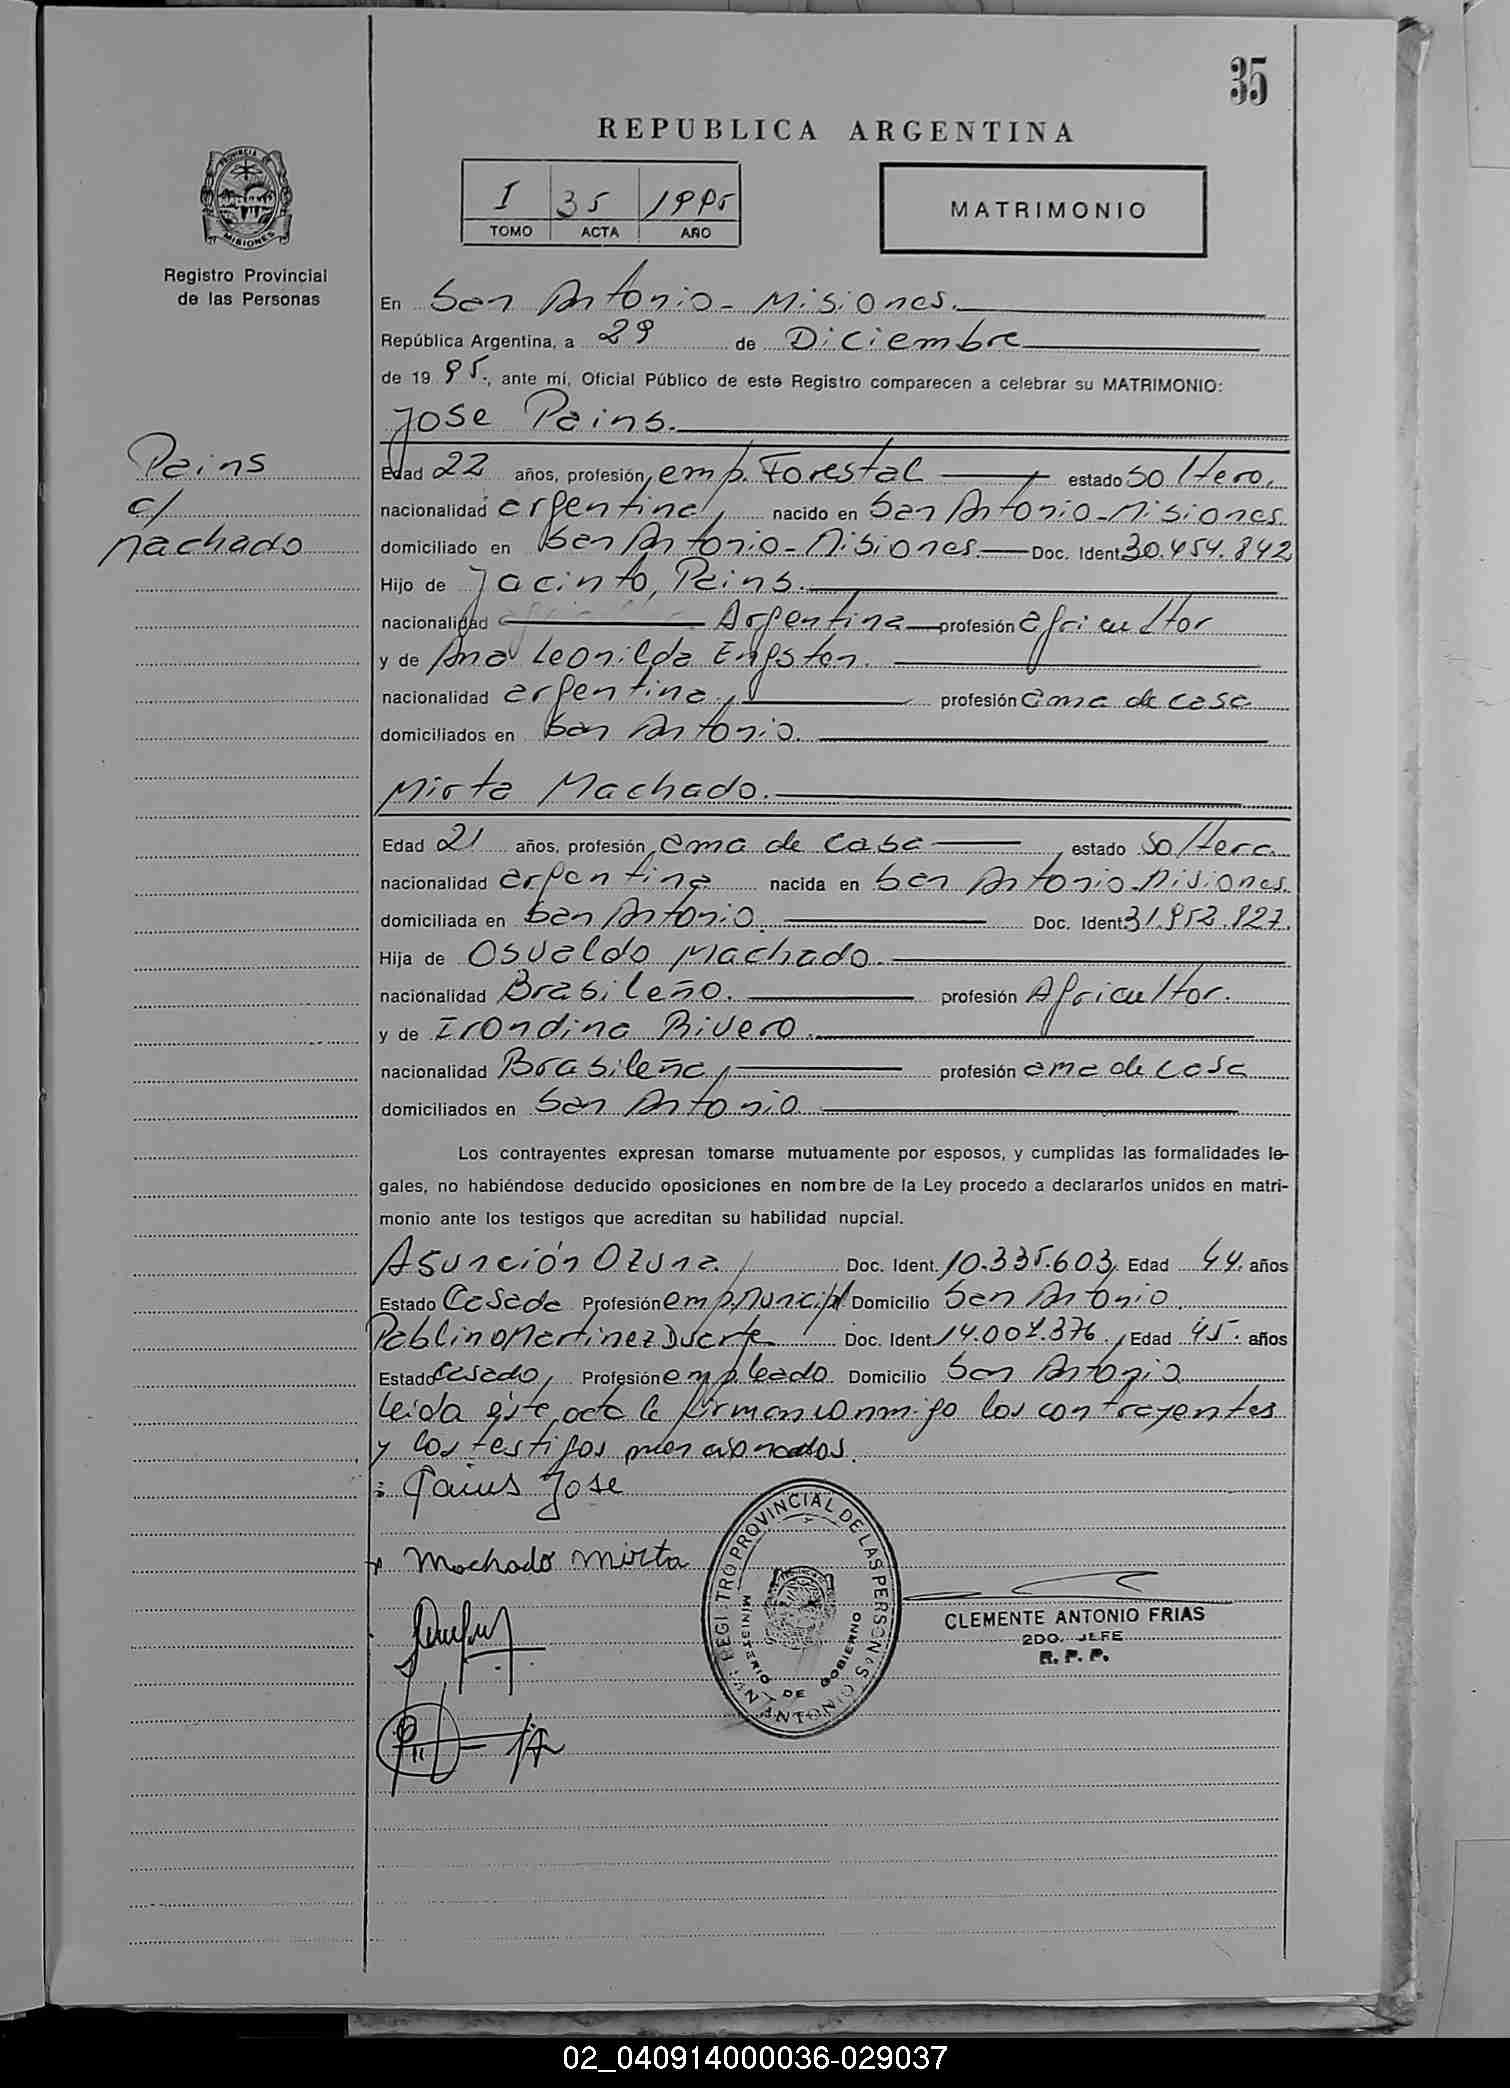 35
REPUBLICA ARGENTINA
I 35 1995
TOMO ACTA AÑO
MATRIMONIO
PROVINCIA DE
MISIONES
Registro Provincial
de las Personas
En San Antonio - Misiones.
República Argentina, a 29 de Diciembre
de 19 95., ante mí, Oficial Público de este Registro comparecen a celebrar su MATRIMONIO:
Jose Pains.
Pains
c/
Machado
Edad 22 años, profesión, emp. Forestal estado soltero,
nacionalidad argentina, nacido en San Antonio - Misiones.
domiciliado en San Antonio - Misiones. Doc. Ident. 30.454.842
Hijo de Jacinto, Pains.
nacionalidad Argentina profesión agricultor
y de Ana Leonilda Engster.
nacionalidad argentina, profesión ama de casa
domiciliados en San Antonio.
Mirta Machado.
Edad 21 años, profesión, ama de casa estado soltera
nacionalidad argentina nacida en San Antonio - Misiones.
domiciliada en San Antonio. Doc. Ident. 31.952.827.
Hija de Osvaldo Machado.
nacionalidad Brasileño. profesión Agricultor.
y de Irondina Rivero.
nacionalidad Brasileña, profesión ama de casa
domiciliados en San Antonio
Los contrayentes expresan tomarse mutuamente por esposos, y cumplidas las formalidades le-
gales, no habiéndose deducido oposiciones en nombre de la Ley procedo a declararlos unidos en matri-
monio ante los testigos que acreditan su habilidad nupcial.
Asunción Ozuna, Doc. Ident. 10.335.603, Edad 44. años
Estado Casada Profesión emp. Municipl Domicilio San Antonio.
Pablino Martinez Duarte Doc. Ident. 14.007.376, Edad 45. años
Estado Casado, Profesión empleado. Domicilio San Antonio
leida éste acta la firman conmigo los contrayentes
y los testigos mencionados.
Pains Jose
Machado Mirta
REGISTRO PROVINCIAL DE LAS PERSONAS
MINISTERIO DE GOBIERNO
SAN ANTONIO
CLEMENTE ANTONIO FRIAS
2DO. JEFE
R. P. P.
02_040914000036-029037